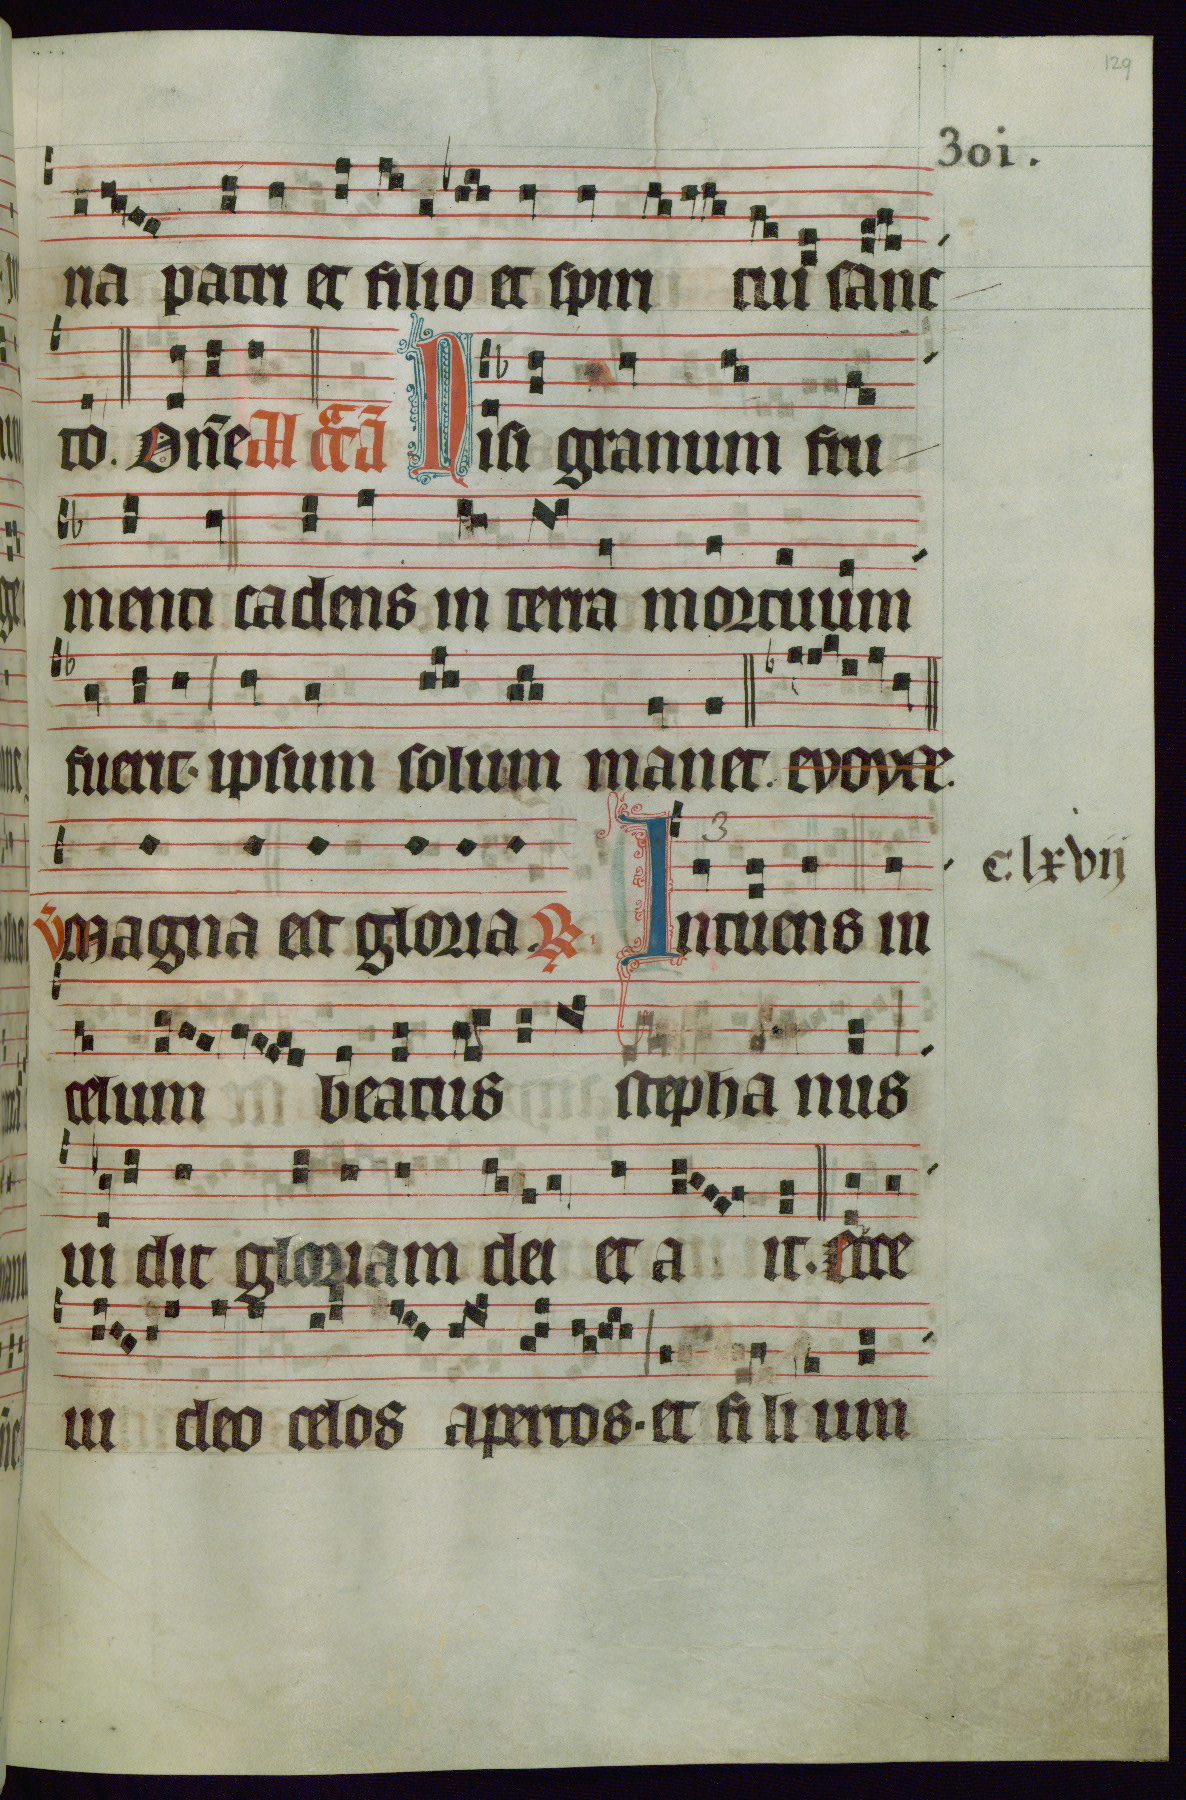 129
301.
ria patri et filio et spiri tui sanc
to. Dn̄e Al cc̄ā Nisi granum fru
menti cadens in terra mortuum
fuerit. ipsum solum manet. evovae.
3
v̄ Magna est gloria. R. Intuens in
c. lxvij
celum beatus stepha nus
ui dit gloriam dei et a it. Ecce
ui deo celos apertos. et fi li um